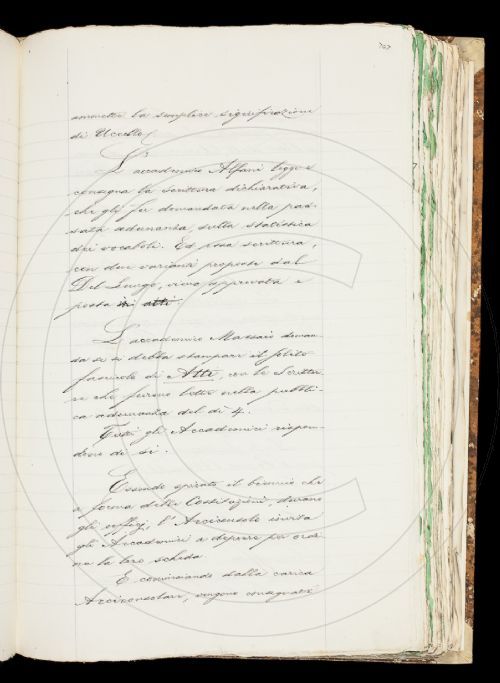 ammette la semplice significazione
di Uccello.
L'accademico Alfani legge e
consegna la scrittura dichiarativa,
che gli fu domandata nella pas-
sata adunanza, sulla statistica
dei vocaboli. Ed essa scrittura,
con due varianti proposte dal
Del Lungo, viene approvata e
posta in atti.
L'accademico Massaio doman-
da se si debba stampare il solito
fascicolo di Atti, con le Scrittu-
re che furono lette nella pubbli-
ca adunanza del dì 4.
Tutti gli Accademici rispon-
dono di sì.
Essendo spirato il biennio che
a forma delle Costituzioni, durano
gli uffizj, l'Arciconsolo invita
gli Accademici a deporre per ordi-
ne la loro scheda.
E cominciando dalla carica
Arciconsolare, vengono consegnate